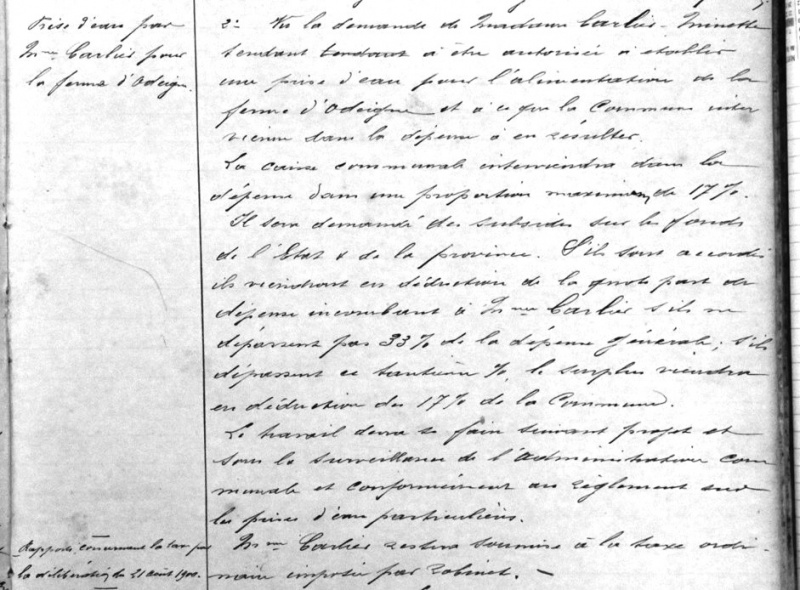 Prise d'eau par
Mme Carlier pour
la ferme d'Odeigne.
2° Vu la demande de Madame Carlier-Minette
tendant tendant à être autorisée à établir
une prise d'eau pour l'alimentation de la
ferme d'Odeigne et à ce que la Commune inter
vienne dans la dépense à en résulter.
La caisse communale interviendra dans la
dépense dans une proportion maximum de 17%.
Il sera demandé des subsides sur les fonds
de l'Etat & de la province. S'ils sont accordés
ils viendront en déduction de la quote part de
dépense incombant à Mme Carlier s'ils ne
dépassent pas 33% de la dépense générale; s'ils
dépassent ce tantième %, le surplus viendra
en déduction des 17% de la Commune.
Le travail devra se faire suivant projet et
sous la surveillance de l'administration com
munale et conformément au règlement sur
les prises d'eau particulières.
Mme Carlier restera soumise à la taxe ordi-
naire imposée par robinet. -
Rapporté concernant la taxe par
la délibération du 21 août 1900.